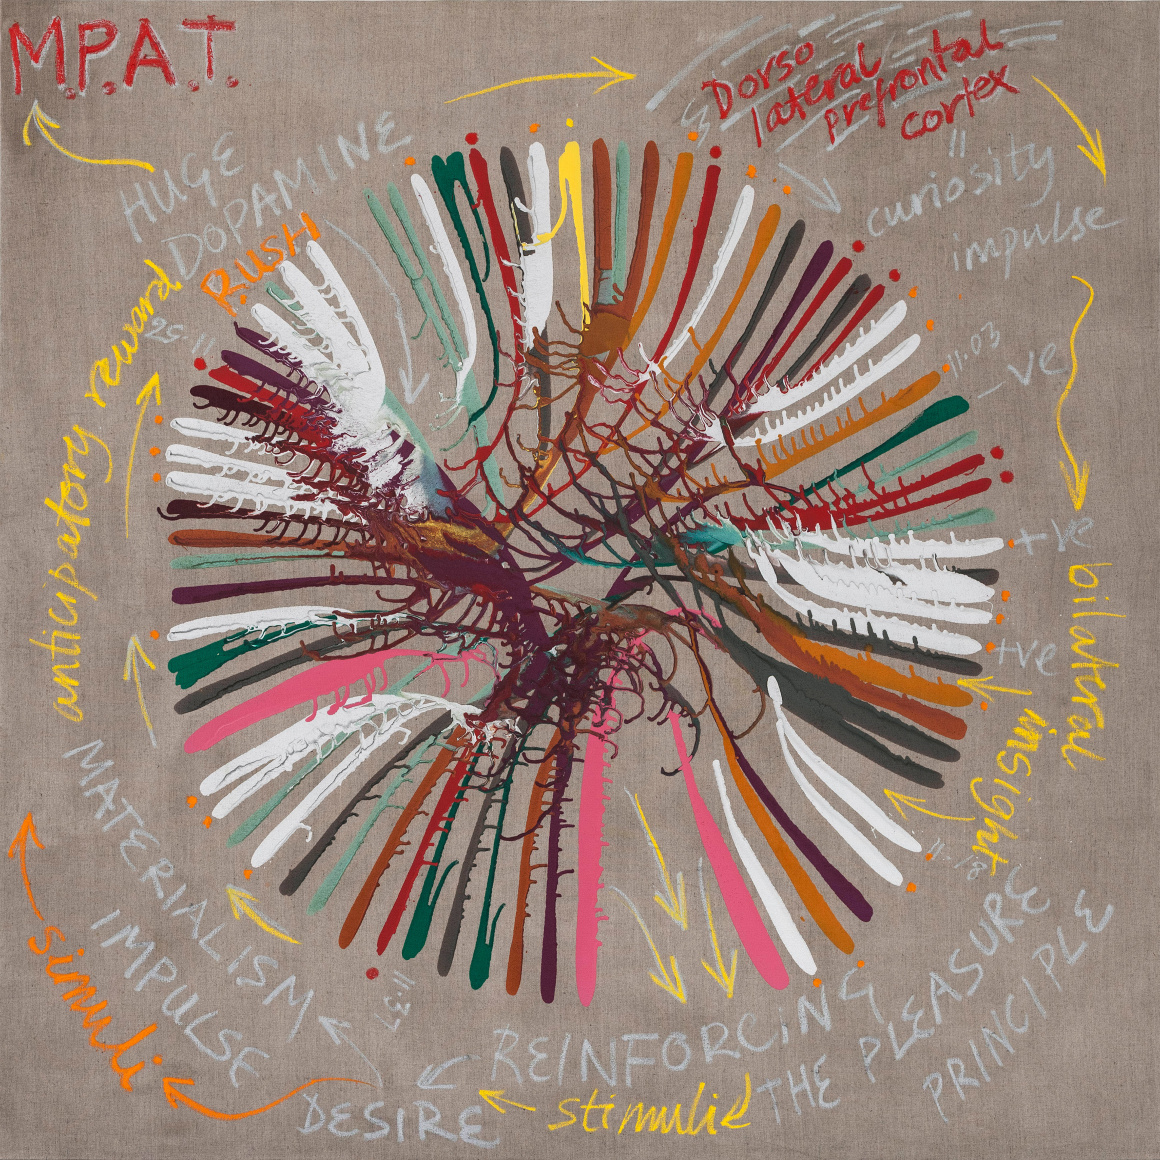 M.P.A.T.
Dorso
lateral
prefrontal
cortex
=
curiosity
impulse
HUGE
DOPAMINE
RUSH
11.25
11.03
-ve
+ve
+ve
bilateral
insight
11.18
THE PLEASURE
PRINCIPLE
REINFORCING
stimuli
DESIRE
11.37
MATERIALISM
IMPULSE
simuli
anticipatory reward